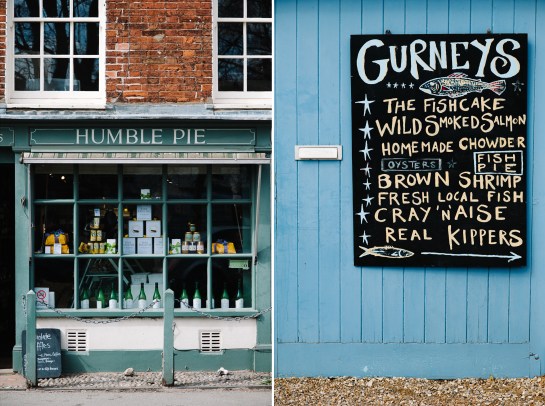 HUMBLE PIE
GURNEYS
THE FISHCAKE
WILD SMOKED SALMON
HOMEMADE CHOWDER
OYSTERS FISH PIE
BROWN SHRIMP
FRESH LOCAL FISH
CRAY 'NAISE
REAL KIPPERS